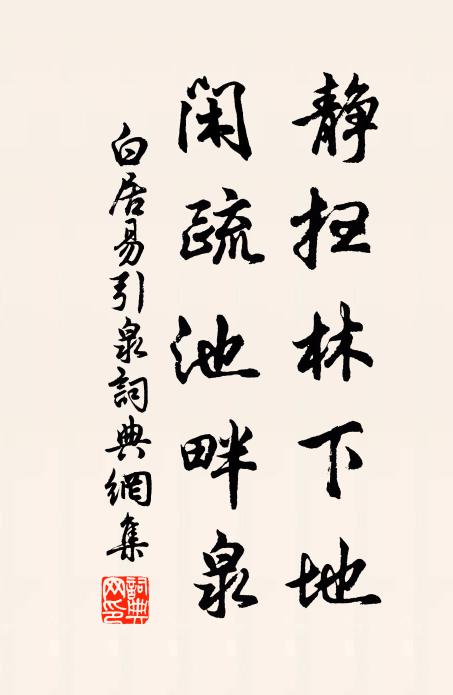 静扫林下地
闲疏池畔泉
白居易引泉詞典網集
詞典网印